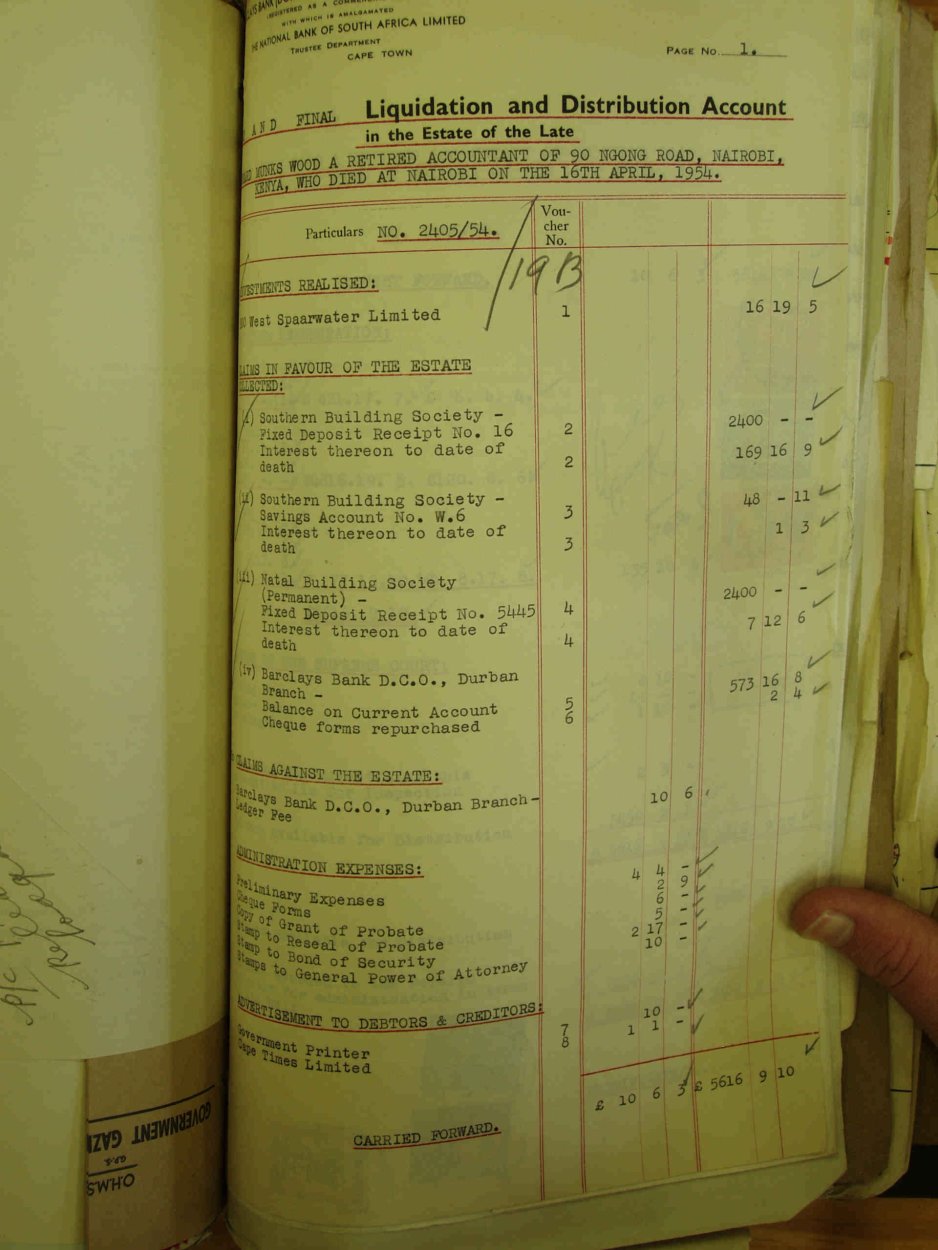 (REGISTERED AS A
WITH WHICH IS AMALGAMATED
THE NATIONAL BANK OF SOUTH AFRICA LIMITED
TRUSTEE DEPARTMENT
CAPE TOWN
PAGE No. 1.
AND FINAL Liquidation and Distribution Account
in the Estate of the Late
MUNKS WOOD A RETIRED ACCOUNTANT OF 90 NGONG ROAD, NAIROBI,
KENYA, WHO DIED AT NAIROBI ON THE 16TH APRIL, 1954.
Particulars NO. 2405/54. Vou-
cher
No.
19 B
ESTMENTS REALISED:
West Spaarwater Limited 1 16 19 5
AIMS IN FAVOUR OF THE ESTATE
LLECTED:
(i) Southern Building Society -
Fixed Deposit Receipt No. 16 2 2400 - -
Interest thereon to date of
death 2 169 16 9
(ii) Southern Building Society -
Savings Account No. W.6 3 48 - 11
Interest thereon to date of
death 3 1 3
(iii) Natal Building Society
(Permanent) -
Fixed Deposit Receipt No. 5445 4 2400 - -
Interest thereon to date of
death 4 7 12 6
(iv) Barclays Bank D.C.O., Durban
Branch -
Balance on Current Account 5 573 16 8
Cheque forms repurchased 6 2 4
CLAIMS AGAINST THE ESTATE:
Barclays Bank D.C.O., Durban Branch-
Ledger Fee 10 6
ADMINISTRATION EXPENSES:
Preliminary Expenses 4 4 -
Cheque Forms 2 9
Copy of Grant of Probate 6 -
Stamp to Reseal of Probate 5 -
Stamp to Bond of Security 2 17 -
Stamps to General Power of Attorney 10 -
ADVERTISEMENT TO DEBTORS & CREDITORS:
Government Printer 7 10 -
Cape Times Limited 8 1 1 -
£ 10 6 3 £ 5616 9 10
CARRIED FORWARD.
GOVERNMENT GAZ
G.P.S.
O.H.M.S.